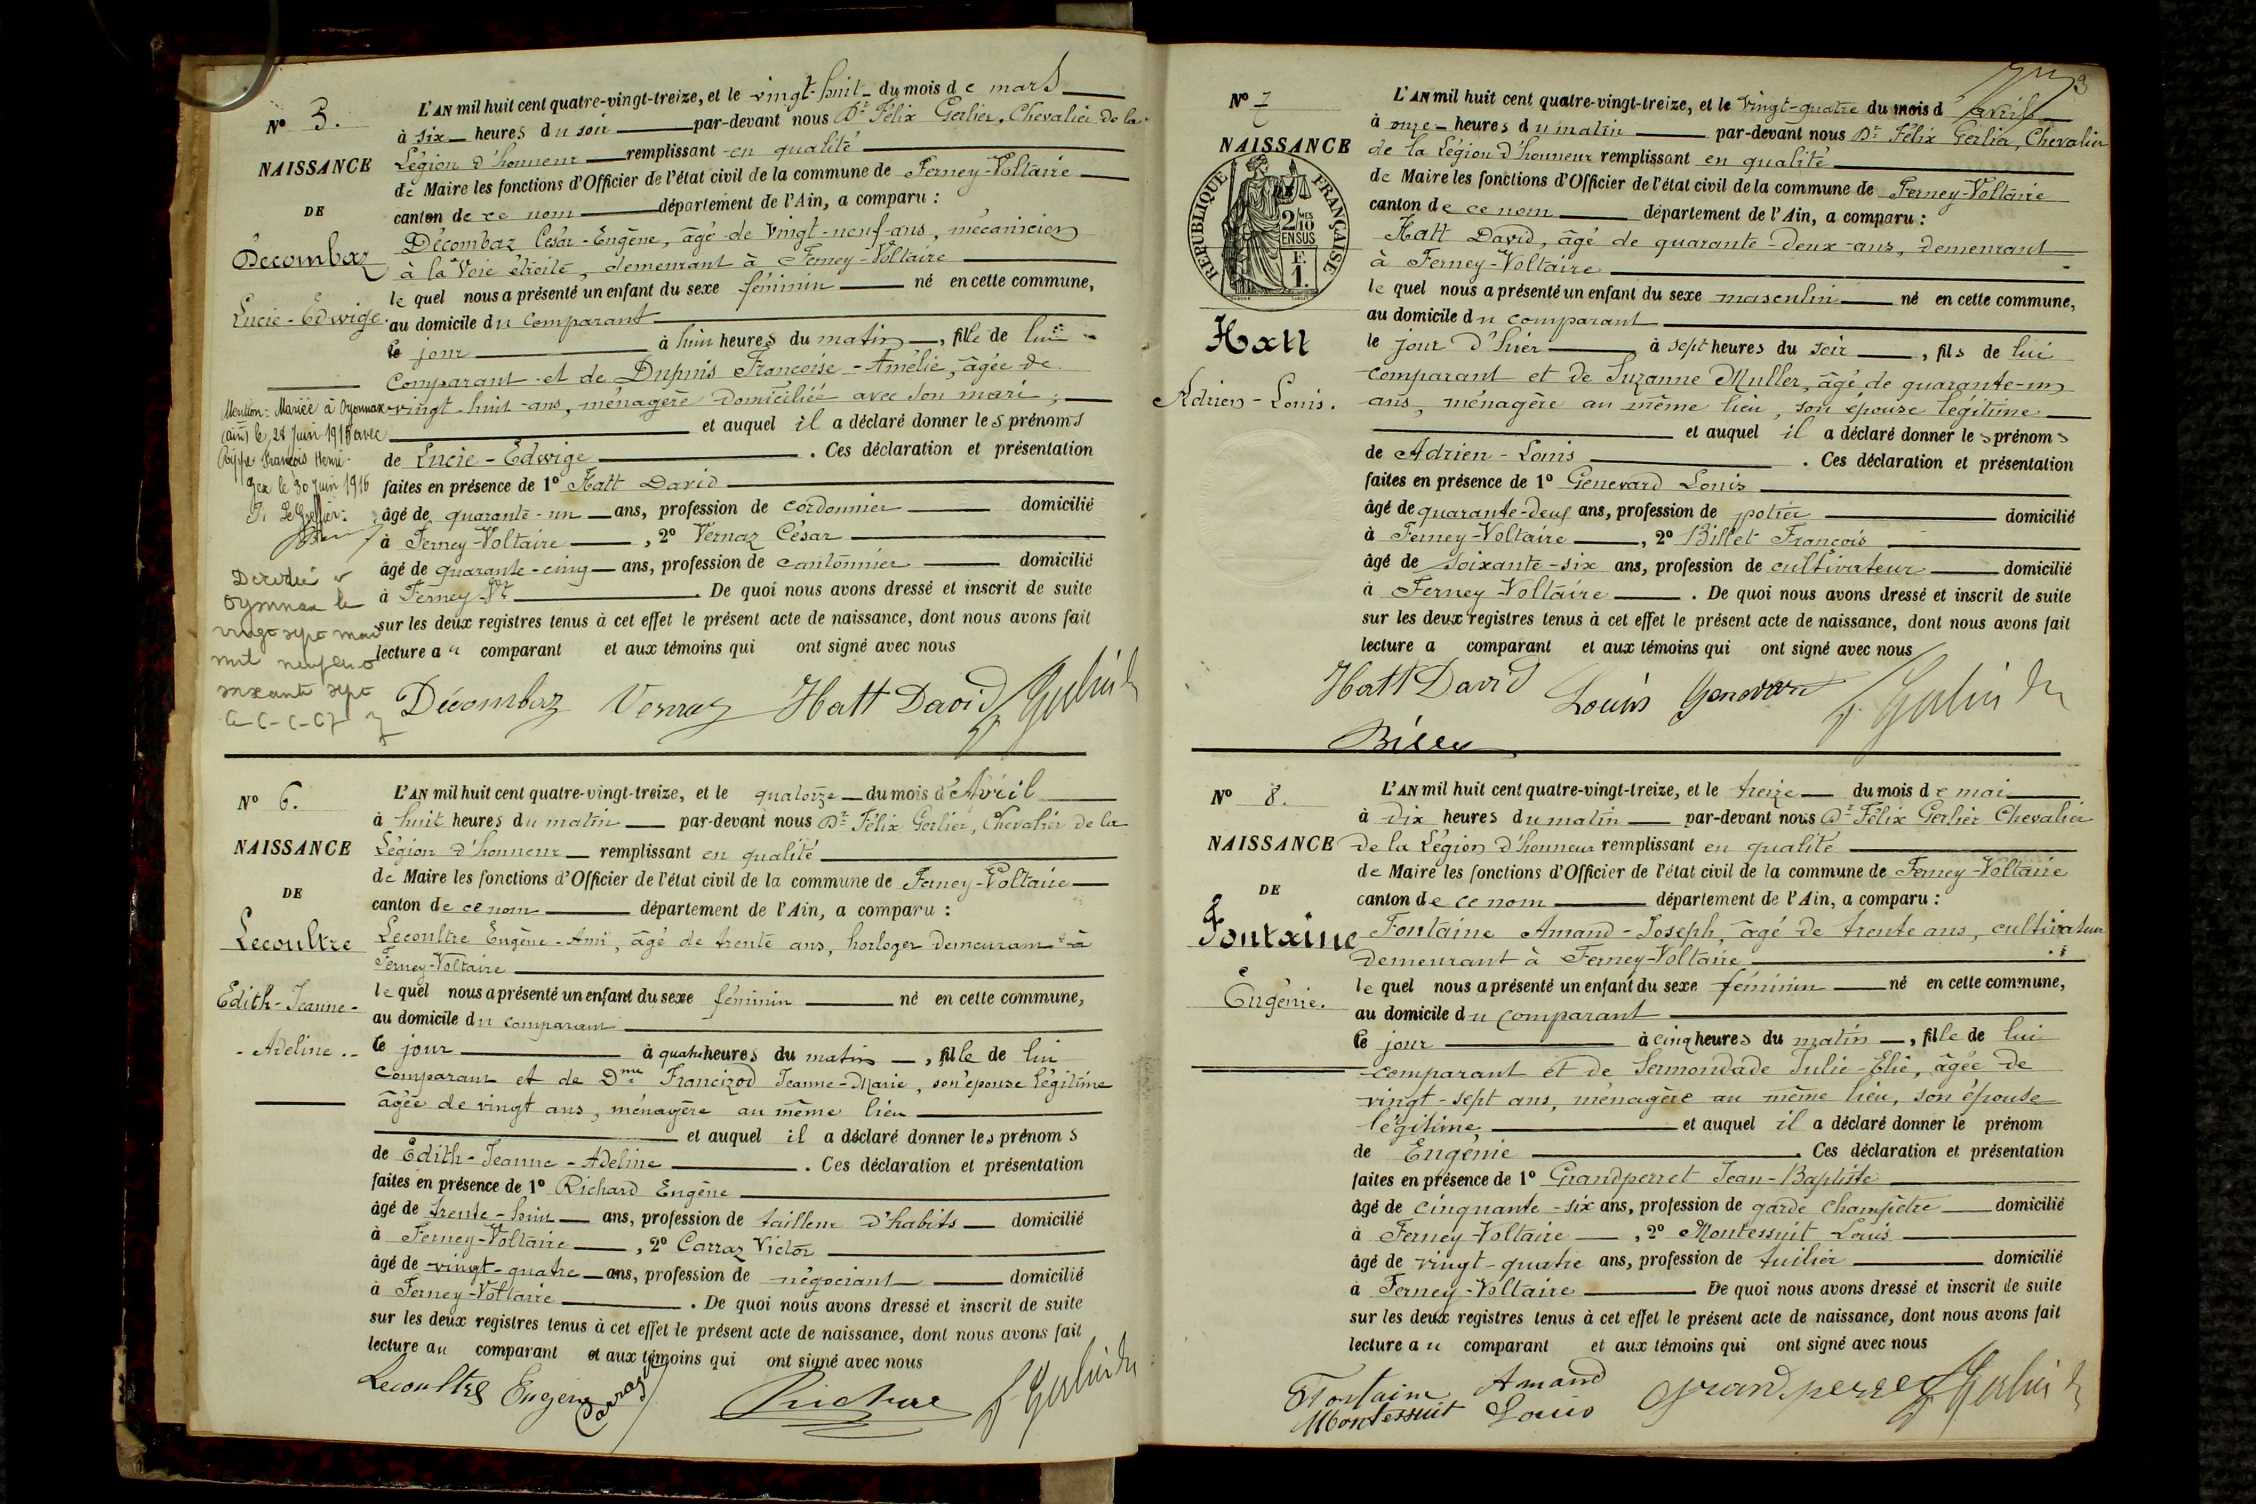 Nº 5.
NAISSANCE
DE
Décombaz
Lucie-Edwige.
Mention: Mariée à Oyonnax
(ain) le 28 Juin 1916 avec
François Henri.
Gex le 30 Juin 1916
P. Le Greffier:
Décédée à
Oyonnax le
vingt sept mai
mil neuf cent
soixante sept
L'AN mil huit cent quatre-vingt-treize, et le vingt-huit du mois de mars
à six heures du soir par-devant nous Dr Félix Gerlier, Chevalier de la
Légion d'honneur remplissant en qualité
de Maire les fonctions d'Officier de l'état civil de la commune de Ferney-Voltaire
canton de ce nom département de l'Ain, a comparu :
Décombaz César-Eugène, âgé de vingt-neuf ans, mécanicien
à la Voie étroite, demeurant à Ferney-Voltaire
le quel nous a présenté un enfant du sexe féminin né en cette commune,
au domicile du comparant
ce jour à huit heures du matin, fille de lui
comparant et de Dupuis Françoise-Amélie, âgée de
vingt-huit ans, ménagère domiciliée avec son mari;
et auquel il a déclaré donner les prénoms
de Lucie-Edwige. Ces déclaration et présentation
faites en présence de 1º Hatt David
âgé de quarante-un ans, profession de cordonnier domicilié
à Ferney-Voltaire, 2º Vernaz César
âgé de quarante-cinq ans, profession de cantonnier domicilié
à Ferney-Vre. De quoi nous avons dressé et inscrit de suite
sur les deux registres tenus à cet effet le présent acte de naissance, dont nous avons fait
lecture au comparant et aux témoins qui ont signé avec nous
Décombaz Vernaz Hatt David F Gerlier Dr
Nº 6.
NAISSANCE
DE
Lecoultre
Edith-Jeanne-
-Adeline.-
L'AN mil huit cent quatre-vingt-treize, et le quatorze du mois d'Avril
à huit heures du matin par-devant nous Dr Félix Gerlier, Chevalier de la
Légion d'honneur remplissant en qualité
de Maire les fonctions d'Officier de l'état civil de la commune de Ferney-Voltaire
canton de ce nom département de l'Ain, a comparu :
Lecoultre Eugène-Ami, âgé de trente ans, horloger demeurant à
Ferney-Voltaire
le quel nous a présenté un enfant du sexe féminin né en cette commune,
au domicile du comparant
ce jour à quatre heures du matin, fille de lui
comparant et de Dme Francizod Jeanne-Marie, son épouse légitime
âgée de vingt ans, ménagère au même lieu
et auquel il a déclaré donner les prénoms
de Edith-Jeanne-Adeline. Ces déclaration et présentation
faites en présence de 1º Richard Eugène
âgé de trente-huit ans, profession de tailleur d'habits domicilié
à Ferney-Voltaire, 2º Carraz Victor
âgé de vingt-quatre ans, profession de négociant domicilié
à Ferney-Voltaire. De quoi nous avons dressé et inscrit de suite
sur les deux registres tenus à cet effet le présent acte de naissance, dont nous avons fait
lecture au comparant et aux témoins qui ont signé avec nous
Lecoultre Eugène Carraz V Richard F Gerlier Dr
3
Nº 7
NAISSANCE
DE
RÉPUBLIQUE FRANÇAISE
2/10 MES
EN SUS
F.
1.
Hatt
Adrien-Louis.
L'AN mil huit cent quatre-vingt-treize, et le vingt-quatre du mois d'avril
à onze heures du matin par-devant nous Dr Félix Gerlier, Chevalier
de la Légion d'honneur remplissant en qualité
de Maire les fonctions d'Officier de l'état civil de la commune de Ferney-Voltaire
canton de ce nom département de l'Ain, a comparu :
Hatt David, âgé de quarante-deux ans, demeurant
à Ferney-Voltaire
le quel nous a présenté un enfant du sexe masculin né en cette commune,
au domicile du comparant
le jour d'hier à sept heures du soir, fils de lui
comparant et de Suzanne Muller, âgé de quarante-un
ans, ménagère au même lieu, son épouse légitime
et auquel il a déclaré donner les prénoms
de Adrien-Louis. Ces déclaration et présentation
faites en présence de 1º Genevard Louis
âgé de quarante-deux ans, profession de potier domicilié
à Ferney-Voltaire, 2º Billet François
âgé de soixante-six ans, profession de cultivateur domicilié
à Ferney-Voltaire. De quoi nous avons dressé et inscrit de suite
sur les deux registres tenus à cet effet le présent acte de naissance, dont nous avons fait
lecture a comparant et aux témoins qui ont signé avec nous
Hatt David Louis Genevard F Gerlier Dr
Nº 8.
NAISSANCE
DE
Fontaine
Eugénie.
L'AN mil huit cent quatre-vingt-treize, et le treize du mois de mai
à dix heures du matin par-devant nous Dr Félix Gerlier Chevalier
de la Légion d'honneur remplissant en qualité
de Maire les fonctions d'Officier de l'état civil de la commune de Ferney-Voltaire
canton de ce nom département de l'Ain, a comparu :
Fontaine Amand-Joseph, âgé de trente ans, cultivateur
demeurant à Ferney-Voltaire
le quel nous a présenté un enfant du sexe féminin né en cette commune,
au domicile du comparant
ce jour à cinq heures du matin, fille de lui
comparant et de Sermondade Julie-Elie, âgée de
vingt-sept ans, ménagère au même lieu, son épouse
légitime, et auquel il a déclaré donner le prénom
de Eugénie. Ces déclaration et présentation
faites en présence de 1º Grandperret Jean-Baptiste
âgé de cinquante-six ans, profession de garde champêtre domicilié
à Ferney-Voltaire, 2º Montessuit Louis
âgé de vingt-quatre ans, profession de tuilier domicilié
à Ferney-Voltaire De quoi nous avons dressé et inscrit de suite
sur les deux registres tenus à cet effet le présent acte de naissance, dont nous avons fait
lecture au comparant et aux témoins qui ont signé avec nous
Fontaine Amand Grandperret F Gerlier Dr
Montessuit Louis